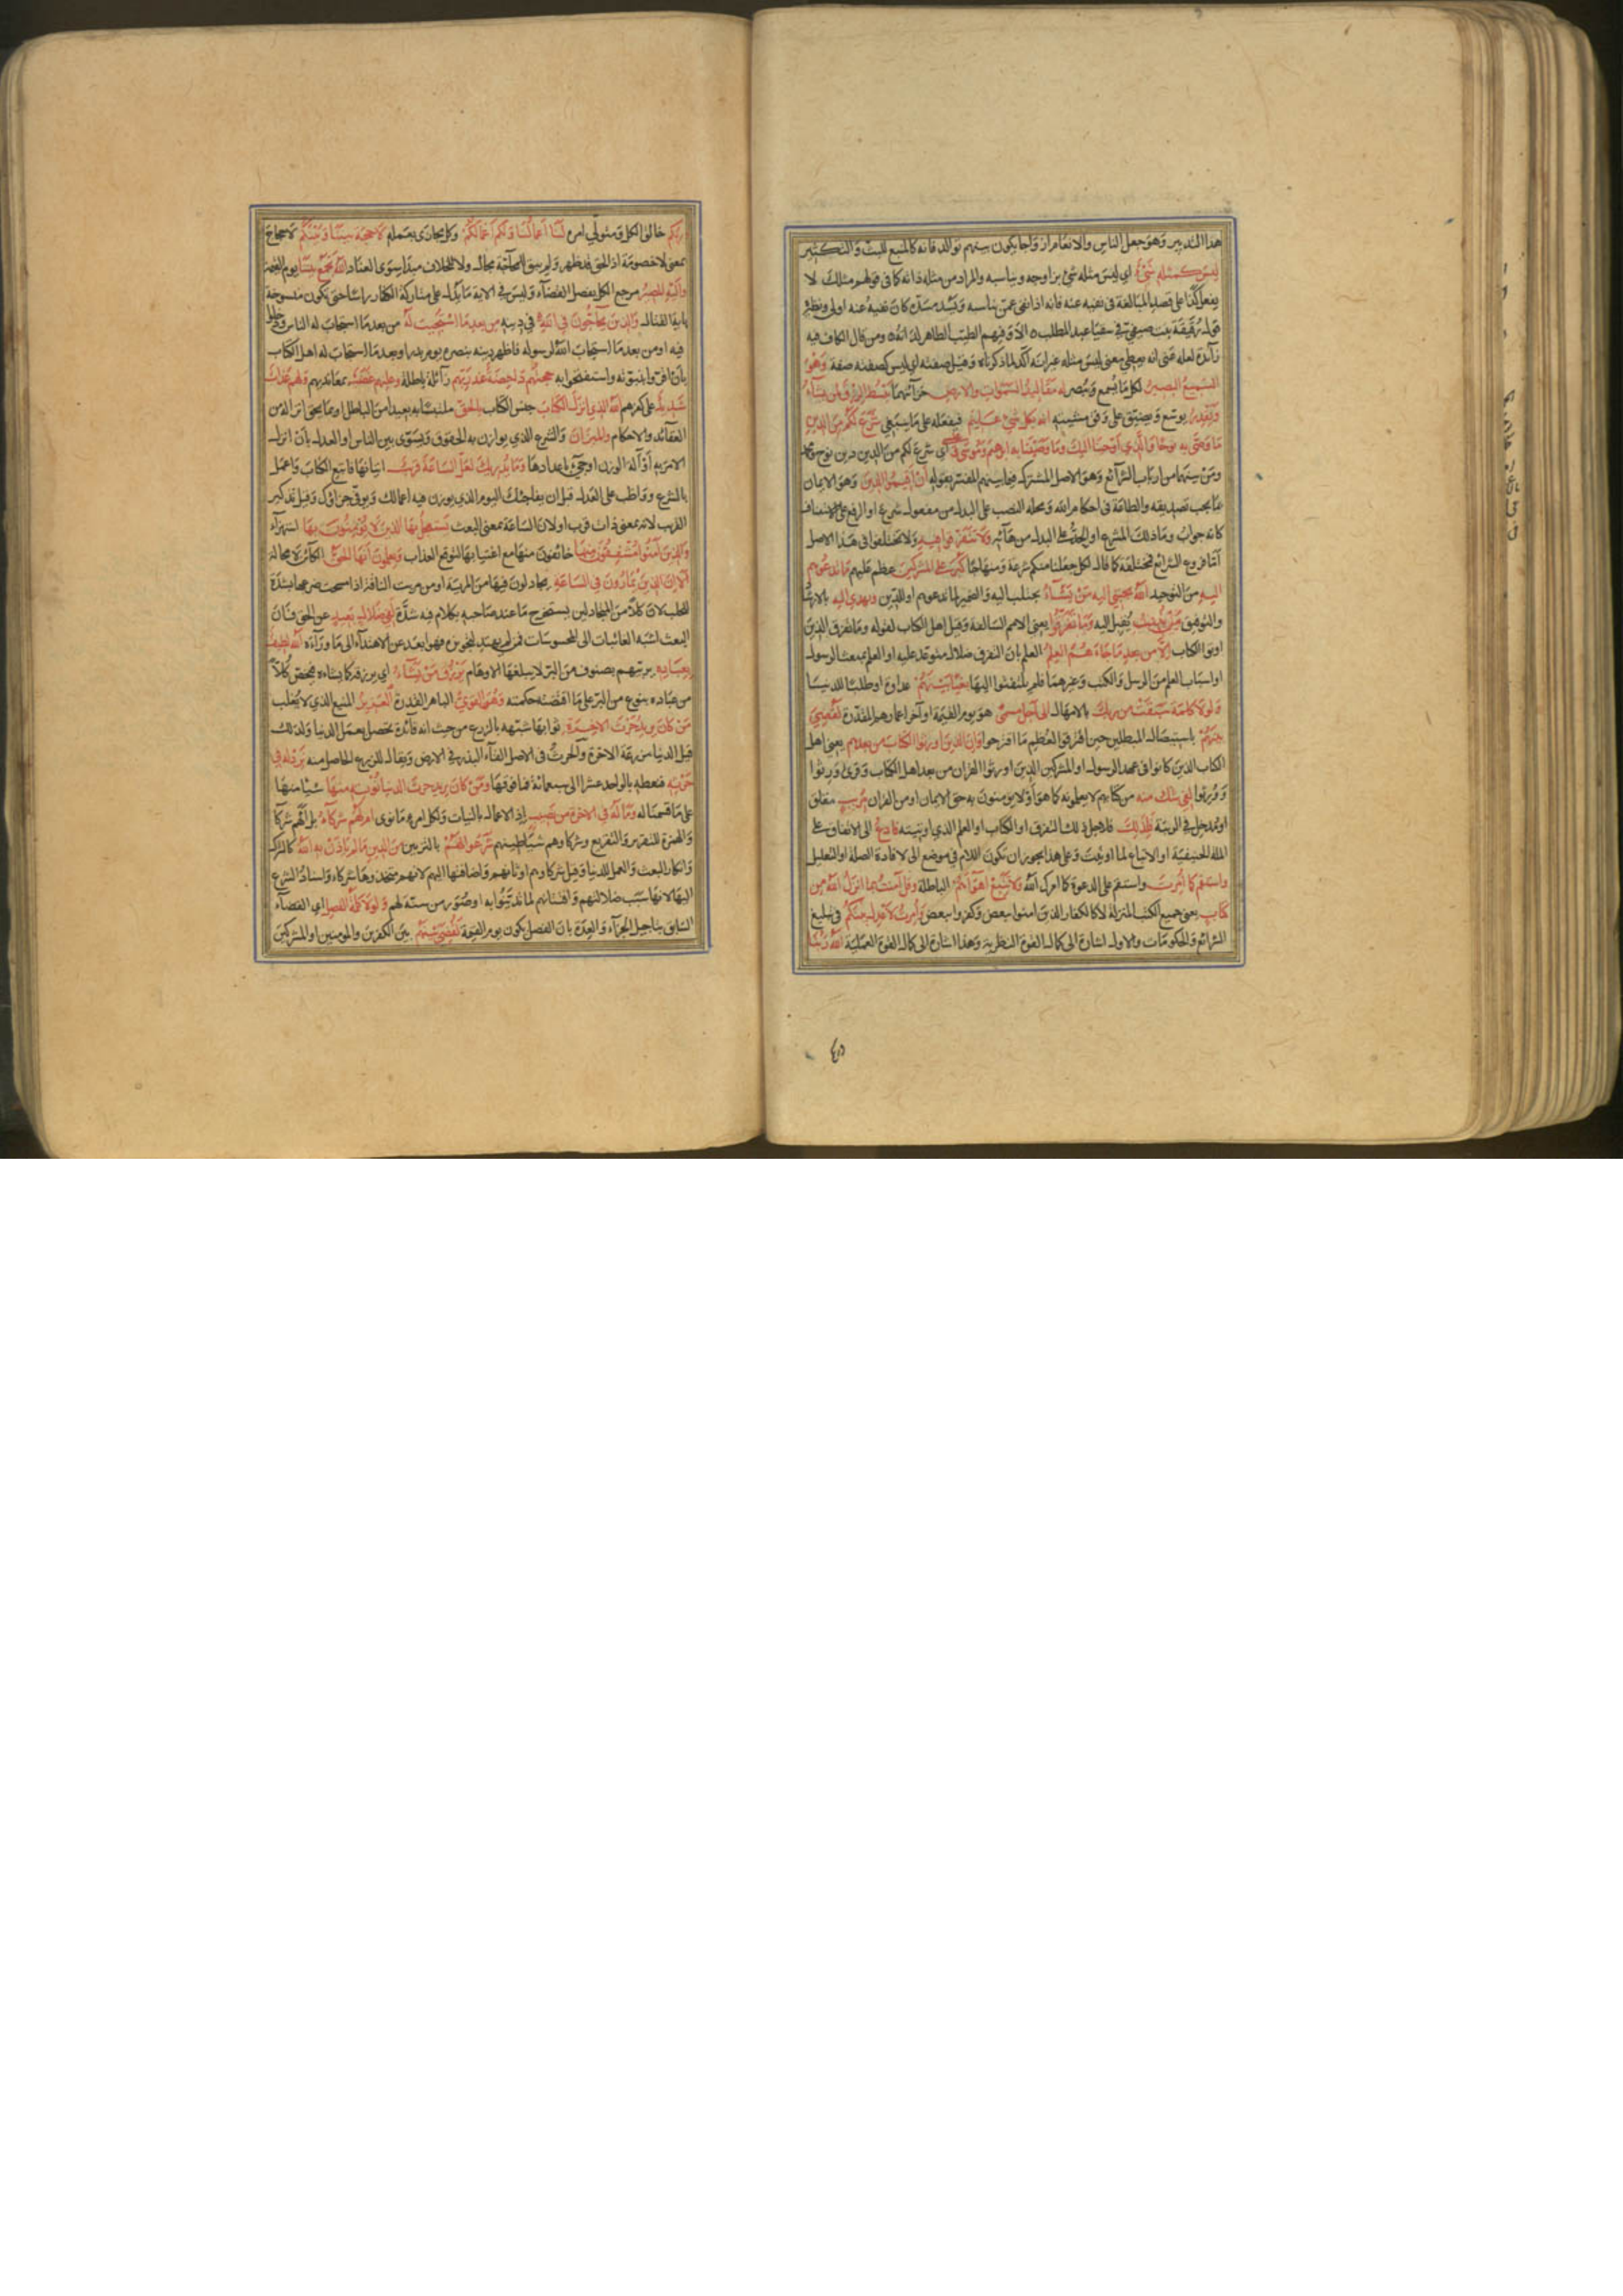 هذا التدبير وهو جعل الناس والانعام ازواجا يكون بينهم توالد فانه كالمنبع للبث والتكثير
ليس كمثله شئ اي ليس مثله شئ يزاوجه ويناسبه والمراد من مثله ذاته كما في قولهم مثلك لا
يفعل كذا على قصد المبالغة في نفيه عنه فانه اذا نفى عمن يناسبه ويسد مسده كان نفيه عنه اولى ونظيره
قول رقيقة بنت صيفي في سقيا عبد المطلب الا وفيهم الطيب الطاهر لذاته ومن قال الكاف فيه
زائدة لعله عنى انه يعطى معنى ليس مثله غير انه آكد لما ذكرناه وقيل صفته اي ليس كصفته صفة وهو
السميع البصير لكل ما يسمع ويبصر له مقاليد السموات والارض خزآئنهما يبسط الرزق لمن يشاء
ويقدر يوسع ويضيق على وفق مشيئته انه بكل شئ عليم فيفعله على ما ينبغي شرع لكم من الدين
ما وصى به نوحا والذي اوحينا اليك وما وصينا به ابرهيم وموسى وعيسى اي شرع لكم من الدين دين نوح ومحمد
ومن بينهما من ارباب الشرآئع وهو الاصل المشترك فيما بينهم المفسر بقوله ان اقيموا الدين وهو الايمان
بما يجب تصديقه والطاعة في احكام الله ومحله النصب على البدل من مفعول شرع او الرفع على الاستئناف
كانه جواب وما ذلك المشروع او الجر على البدل من هآء به ولا تتفرقوا فيه ولا تختلفوا في هذا الاصل
اما فروع الشرائع فمختلفة كما قال لكل جعلنا منكم شرعة ومنهاجا كبر على المشركين عظم عليهم ما تدعوهم
اليه من التوحيد الله يجتبي اليه من يشآء يجتلب اليه والضمير لما تدعوهم او للدين ويهدي اليه بالارشاد
والتوفيق من ينيب يقبل اليه وما تفرقوا يعني الامم السالفة وقيل اهل الكتاب لقوله وما تفرق الذين
اوتوا الكتاب الا من بعد ما جاءهم العلم العلم بان التفرق ضلال متوعد عليه او العلم بمبعث الرسول
او اسباب العلم من الرسل والكتب وغيرهما فلم يلتفتوا اليها بغيا بينهم عداوة او طلبا للدنيا
ولولا كلمة سبقت من ربك بالامهال الى اجل مسمى هو يوم القيمة او آخر اعمارهم المقدرة لقضي
بينهم باستيصال المبطلين حين افترقوا لعظم ما اقترحوا وان الذين اورثوا الكتاب من بعدهم يعني اهل
الكتاب الذين كانوا في عهد الرسول او المشركين الذين اورثوا القران من بعد اهل الكتاب وقرئ ورثوا
وورثوا لفي شك منه من كتابهم لا يعلمونه كما هو او لا يؤمنون به حق الايمان او من القران مريب مقلق
او مدخل في الريبة فلذلك فلاجل ذلك التفرق او الكتاب او العلم الذي اوتيته فادع الى الاتفاق على
الملة الحنيفية او الاتباع لما اوتيت وعلى هذا يجوز ان تكون اللام في موضع الى لافادة الصلة او التعليل
واستقم كما امرت واستقم على الدعوة كما امرك الله ولا تتبع اهوآءهم الباطلة وقل آمنت بما انزل الله من
كتاب يعني جميع الكتب المنزلة لا كالكفار الذين امنوا ببعض وكفروا ببعض وامرت لاعدل بينكم في تبليغ
الشرائع والحكومات والاول اشارة الى كمال القوة النظرية وهذا اشارة الى كمال القوة العملية الله ربنا
ربكم خالق الكل ومتولي امره لنا اعمالنا ولكم اعمالكم وكل مجازى بعمله لا حجة بيننا وبينكم لا حجاج
بمعنى لا خصومة اذ الحق قد ظهر ولم يبق للمحاجة مجال ولا للخلاف مبدأ سوى العناد الله يجمع بيننا يوم القيمة
واليه المصير مرجع الكل يفصل القضآء وليس في الاية ما يدل على متاركة الكفار راسا حتى تكون منسوخة
باية القتال والذين يحاجون في الله في دينه من بعد ما استجيب له من بعد ما استجاب له الناس ودخلوا
فيه او من بعد ما استجاب الله لرسوله فاظهر دينه بنصره يوم بدر او بعد ما استجاب له اهل الكتاب
بان اقروا بنبوته واستفتحوا به حجتهم داحضة عند ربهم زآئلة باطلة وعليهم غضب بمعاندتهم ولهم عذاب
شديد على كفرهم الله الذي انزل الكتاب جنس الكتاب بالحق ملتبسا به بعيدا من الباطل او بما يحق انزاله من
العقآئد والاحكام والميزان والشرع الذي يوازن به الحقوق ويسوى بين الناس او العدل بان انزل
الامر به او آلة الوزن اوحي باعدادها وما يدريك لعل الساعة قريب اتيانها فاتبع الكتاب واعمل
بالشرع وواظب على العدل قبل ان يفاجئك اليوم الذي يوزن فيه اعمالك ويوفى جزاؤك وقيل تذكير
القريب لانه بمعنى ذات قرب او لان الساعة بمعنى البعث يستعجل بها الذين لا يؤمنون بها استهزآء
والذين آمنوا مشفقون منها خائفون منها مع اعتيابها لتوقع العذاب ويعلمون انها الحق الكآئن لا محالة
الا ان الذين يمارون في الساعة يجادلون فيها من المرية او من مريت الناقة اذا مسحت ضرعها بشدة
للحلب لان كلا من المجادلين يستخرج ما عند صاحبه بكلام فيه شدة لفي ضلال بعيد عن الحق فان
البعث اشبه الغائبات الى المحسوسات فمن لم يهتد لتجويزه فهو ابعد عن الاهتدآء الى ما ورآءه الله لطيف
بعباده يربيهم بصنوف من البر لا يبلغها الاوهام يرزق من يشآء اي يرزقه كما يشاء فيختص كلا
من عباده بنوع من البر على ما اقتضته حكمته وهو القوي الباهر القدرة العزيز المنيع الذي لا يغلب
من كان يريد حرث الاخرة ثوابها شبهه بالزرع من حيث انه فآئدة تحصل بعمل الدنيا ولذلك
قيل الدنيا مزرعة الاخرة والحرث في الاصل القآء البذر في الارض ويقال للزرع الحاصل منه نزد له في
حرثه فنعطه بالواحد عشرا الى سبعمائة فما فوقها ومن كان يريد حرث الدنيا نؤته منها شيئا منها
على ما قسمنا له وما له في الاخرة من نصيب اذ الاعمال بالنيات ولكل امرئ ما نوى ام لهم شركآء بل ألهم شركآء
والهمزة للتقرير والتقريع وشركاؤهم شياطينهم شرعوا لهم بالتزيين من الدين ما لم ياذن به الله كالشرك
وانكار البعث والعمل للدنيا وقيل شركاؤهم اوثانهم واضافتها اليهم لانهم متخذوها شركاء واسناد الشرع
اليها لانها سبب ضلالتهم وافتتانهم لما تدينوا به او صور من سنه لهم ولولا كلمة الفصل اي القضآء
السابق بتاجيل الجزآء والعدة بان الفصل يكون يوم القيمة لقضي بينهم بين الكفرين والمومنين او المشركين